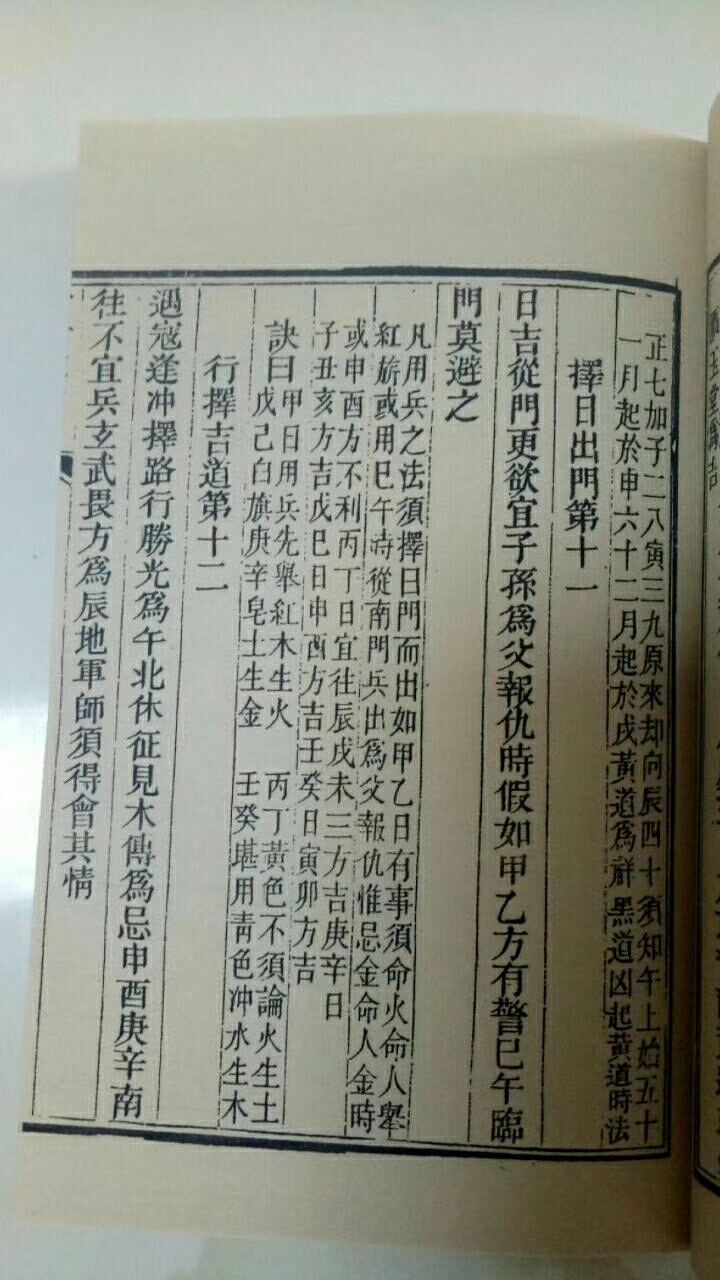 正七加子二八寅三九原來却向辰四十須知午上始五十
一月起於申六十二月起於戌黃道爲祥黑道凶起黃道時法
擇日出門第十一
日吉從門更欲宜子孫爲父報仇時假如甲乙方有警巳午臨
門莫避之
凡用兵之法須擇日門而出如甲乙日有事須命火命人舉
紅旂或用巳午時從南門兵出爲父報仇惟忌金命人金時
或申酉方不利丙丁日宜往辰戌未三方吉庚辛日
子丑亥方吉戊巳日申酉方吉壬癸日寅卯方吉
訣曰甲日用兵先舉紅木生火 丙丁黃色不須論火生土
戊己白旗庚辛皂土生金 壬癸堪用靑色冲水生木
行擇吉道第十二
遇寇逢冲擇路行勝光爲午北休征見木傳爲忌申酉庚辛南
往不宜兵玄武畏方爲辰地軍師須得會其情